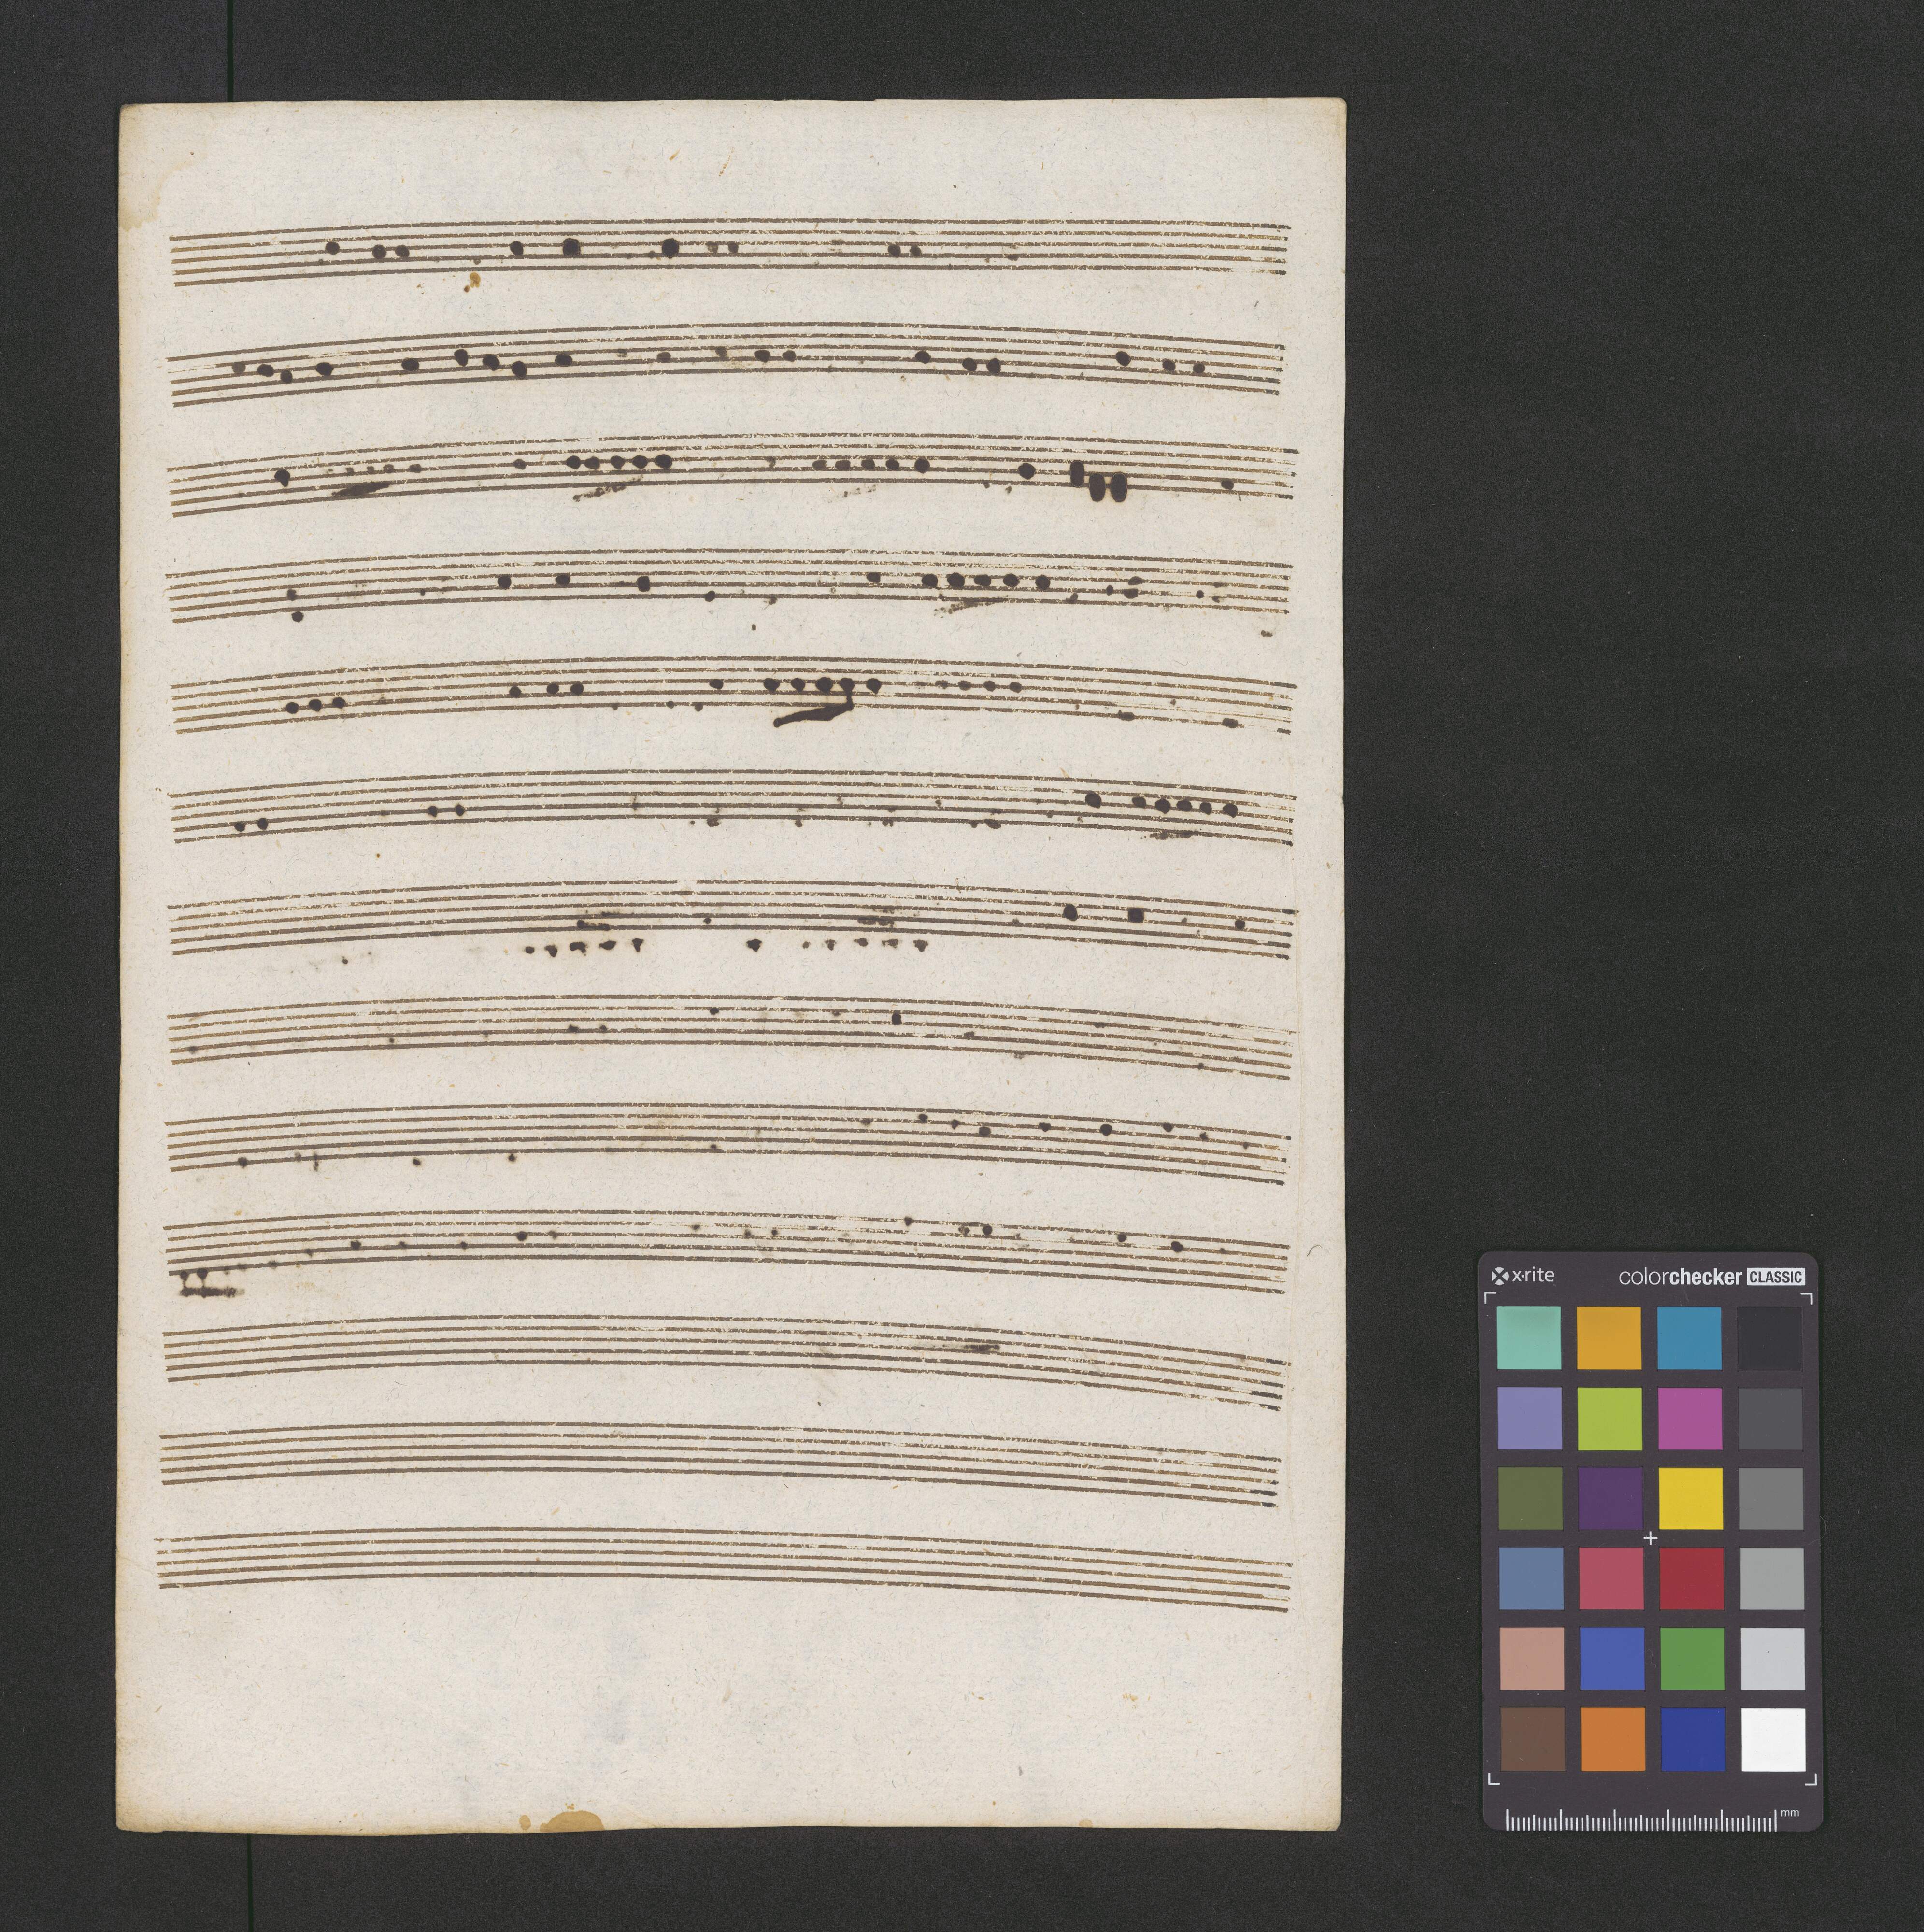 x-rite colorchecker CLASSIC
mm